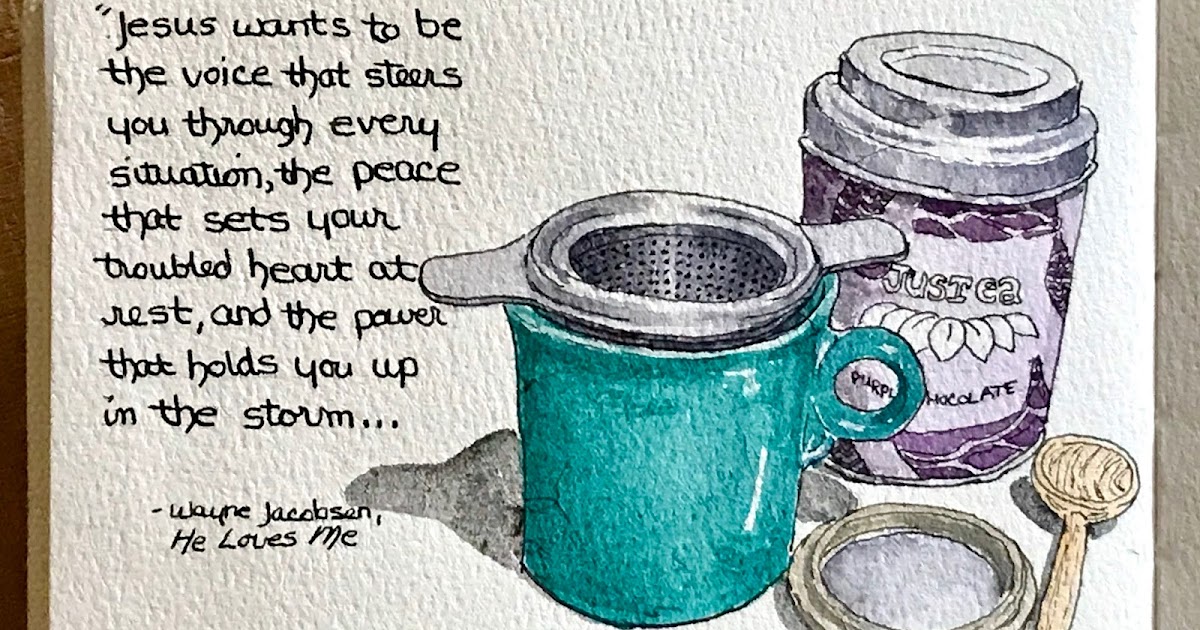 "Jesus wants to be
the voice that steers
you through every
situation, the peace
that sets your
troubled heart at
rest, and the power
that holds you up
in the storm...
- Wayne Jacobsen,
He Loves Me
JUSTea
PURPL HOCOLATE